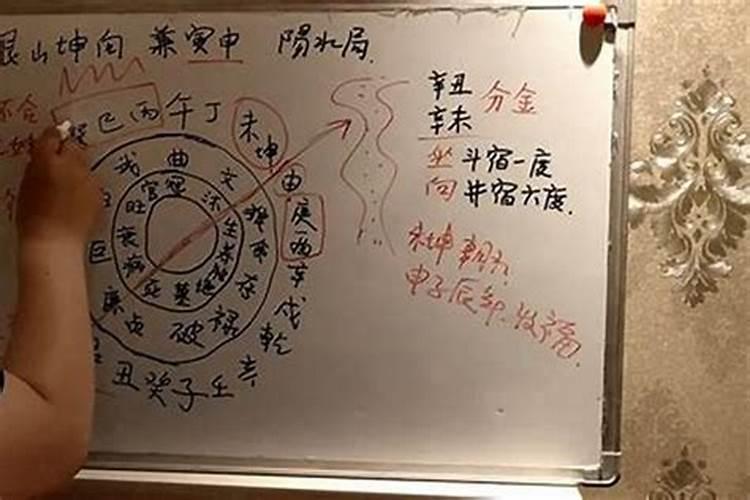 艮山坤向 兼寅申 陽水局.
不合
巽巳丙午丁
未坤
申
庚酉
辛
戌
乾
亥
壬
子
癸
丑
武 曲 文
巨
廉 貞 破 禄 存
官 冠 沐
旺 生
衰 养
病
死 墓 绝
辛丑 分金
辛未
坐 斗宿一度
向 井宿六度.
未坤朝水
申子辰年发福.